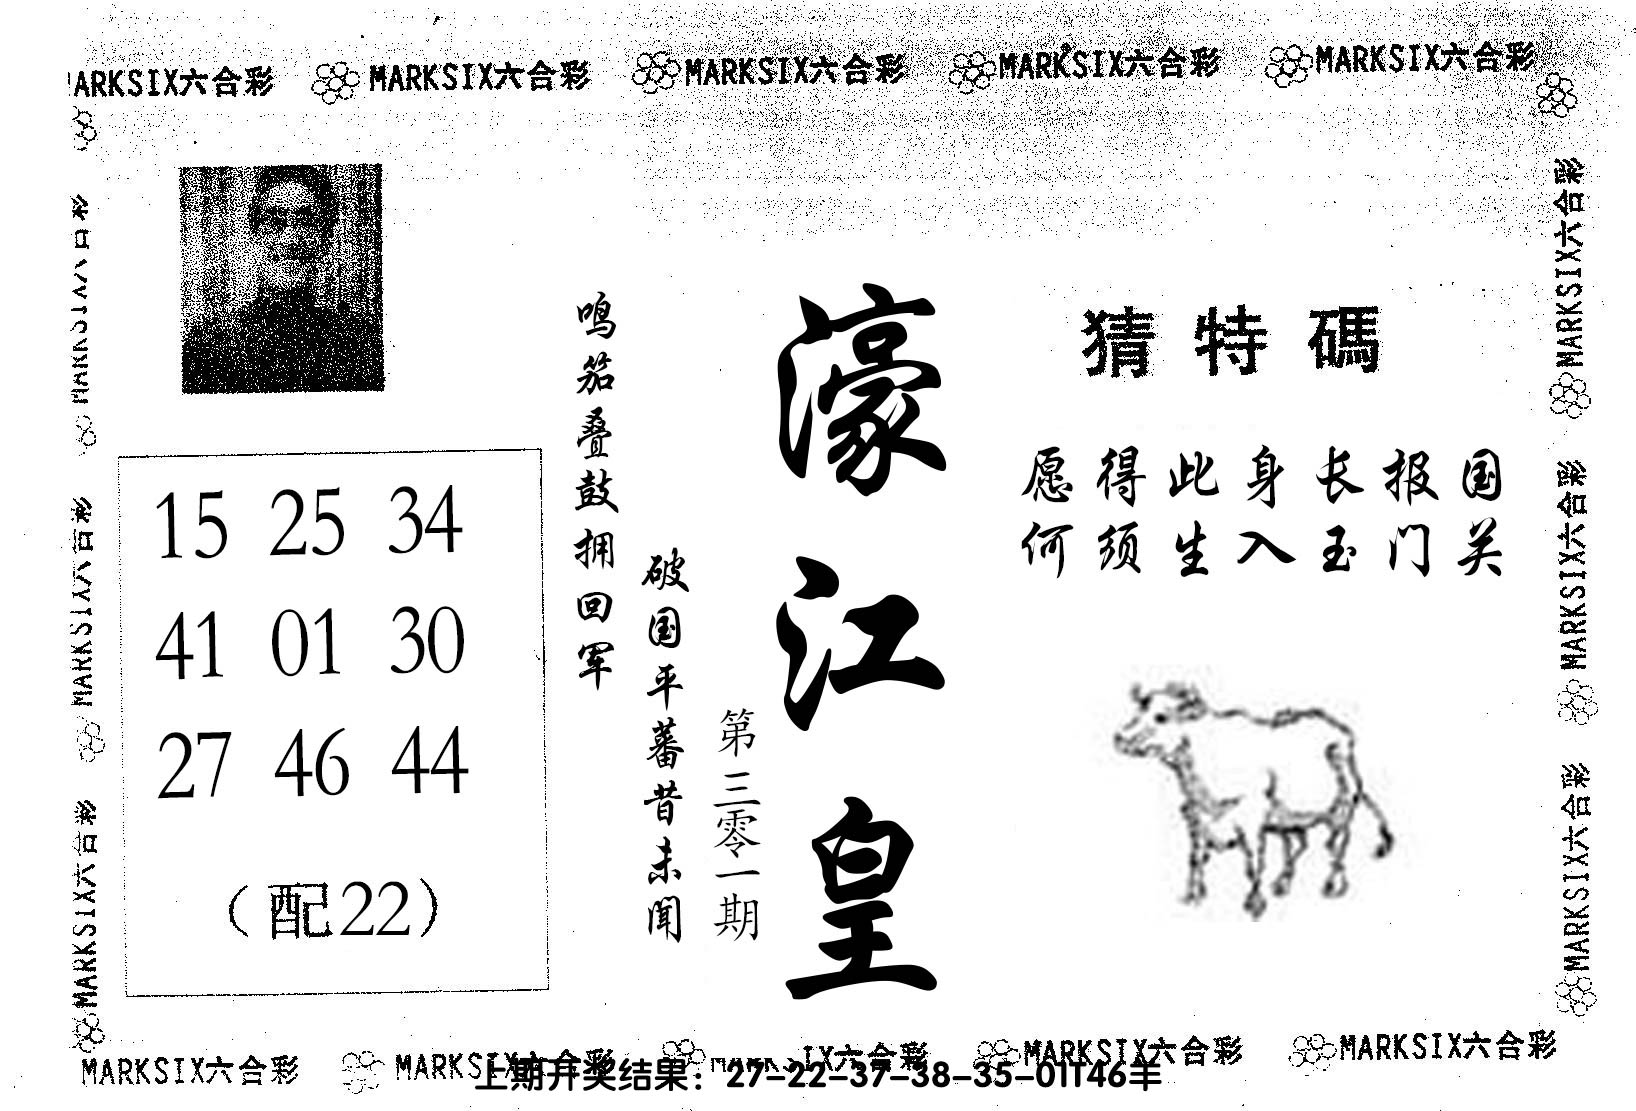 MARKSIX六合彩 MARKSIX六合彩 MARKSIX六合彩 MARKSIX六合彩 MARKSIX六合彩
猜特碼
愿得此身长报国
何须生入玉门关
濠江皇
第三零一期
破国平蕃昔未闻
鸣笳叠鼓拥回军
15 25 34
41 01 30
27 46 44
(配22)
MARKSIX六合彩
MARKSIX六合彩
MARKSIX六合彩
MARKSIX六合彩
MARKSIX六合彩
MARKSIX六合彩
MARKSIX六合彩 MARKSIX六合彩 MARKSIX六合彩 MARKSIX六合彩 MARKSIX六合彩
上期开奖结果：27-22-37-38-35-01T46羊